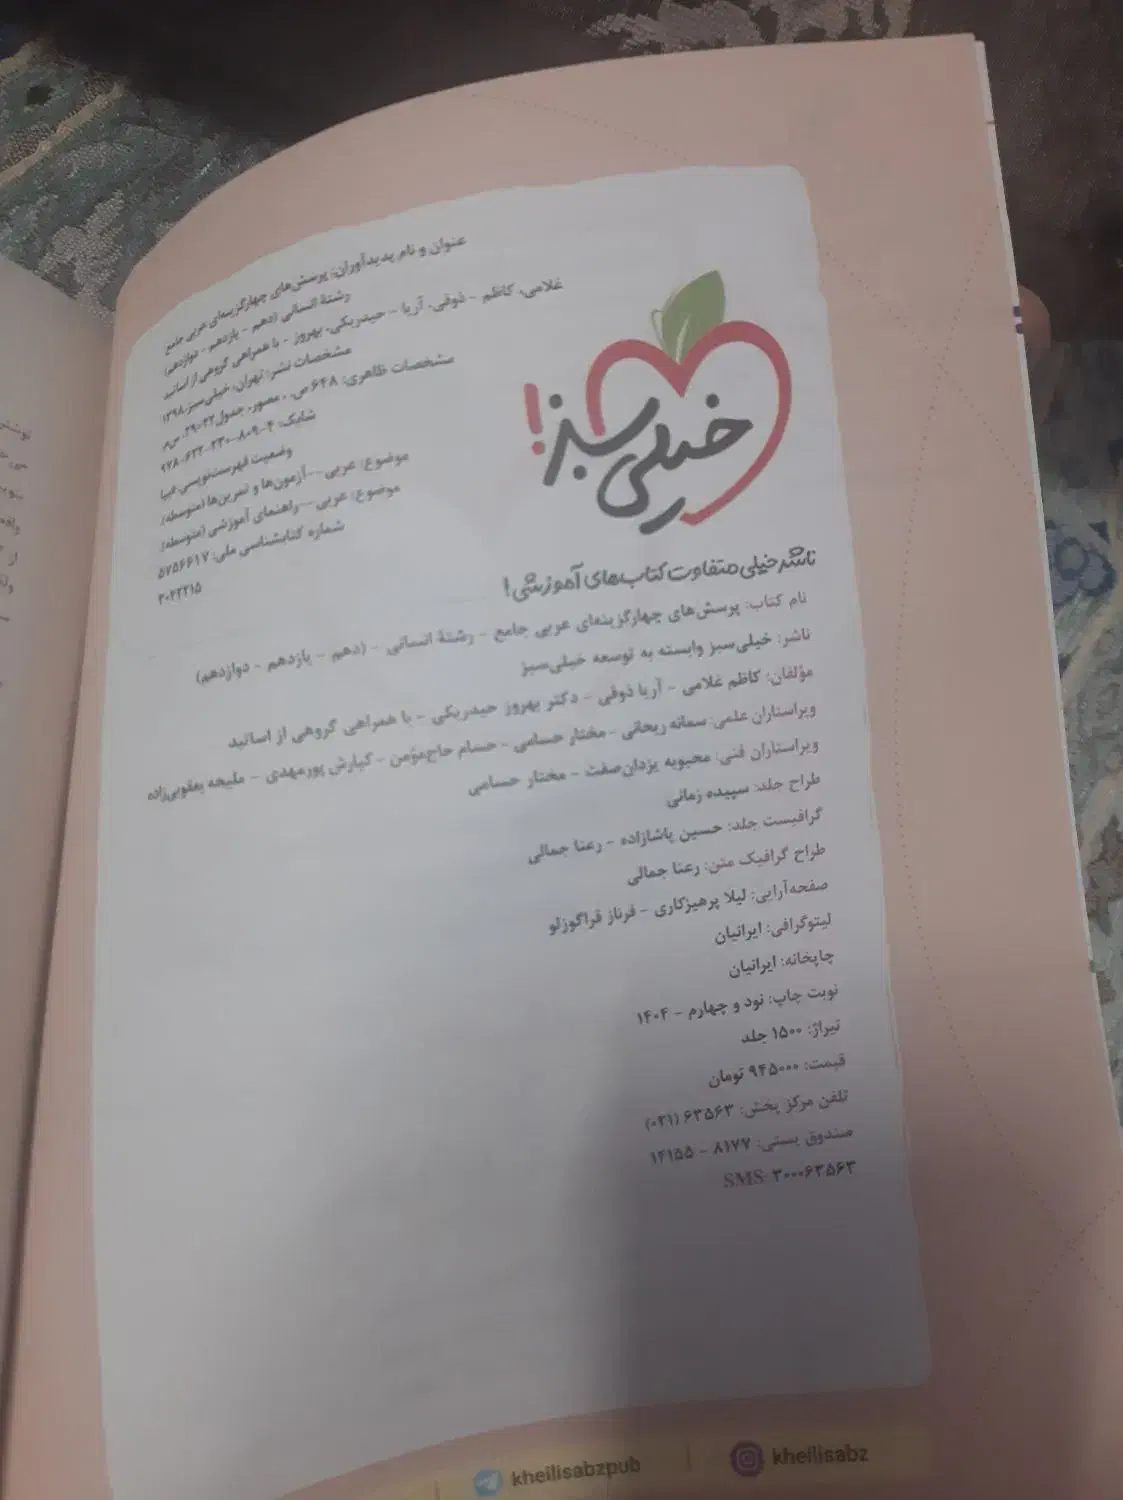 عنوان و نام پدیدآوران: پرسش‌های چهارگزینه‌ای عربی جامع
رشتهٔ انسانی (دهم - یازدهم - دوازدهم)
غلامی، کاظم - ذوقی، آریا - حیدربکی، بهروز - با همراهی گروهی از اساتید
مشخصات نشر: تهران، خیلی‌سبز، ۱۳۹۸
مشخصات ظاهری: ۶۴۸ ص. ، مصور، جدول ۲۲×۲۹ س‌م.
شابک: ۴-۸۰۹-۲۳۰-۶۲۲-۹۷۸
وضعیت فهرست‌نویسی: فیپا
موضوع: عربی--آزمون‌ها و تمرین‌ها (متوسطه)
موضوع: عربی--راهنمای آموزشی (متوسطه)
شماره کتابشناسی ملی: ۵۷۵۶۶۱۷
۳۰۲۲۲۱۵
خیلی سبز!
ناشر خیلی متفاوت کتاب‌های آموزشی!
نام کتاب: پرسش‌های چهارگزینه‌ای عربی جامع - رشتهٔ انسانی - (دهم - یازدهم - دوازدهم)
ناشر: خیلی‌سبز وابسته به توسعه خیلی‌سبز
مؤلفان: کاظم غلامی - آریا ذوقی - دکتر بهروز حیدربکی - با همراهی گروهی از اساتید
ویراستاران علمی: سمانه ریحانی - مختار حسامی - حسام حاج‌مؤمن - کیارش پورمهدی - ملیحه یعقوبی‌زاده
ویراستاران فنی: محبوبه یزدان‌صفت - مختار حسامی
طراح جلد: سپیده زمانی
گرافیست جلد: حسین پاشازاده - رعنا جمالی
طراح گرافیک متن: رعنا جمالی
صفحه‌آرایی: لیلا پرهیزکاری - فرناز قراگوزلو
لیتوگرافی: ایرانیان
چاپخانه: ایرانیان
نوبت چاپ: نود و چهارم - ۱۴۰۴
تیراژ: ۱۵۰۰ جلد
قیمت: ۹۴۵۰۰۰ تومان
تلفن مرکز پخش: ۶۳۵۶۳ (۰۲۱)
صندوق پستی: ۸۱۷۷ - ۱۴۱۵۵
SMS: ۳۰۰۰۶۳۵۶۳
kheilisabzpub
kheilisabz